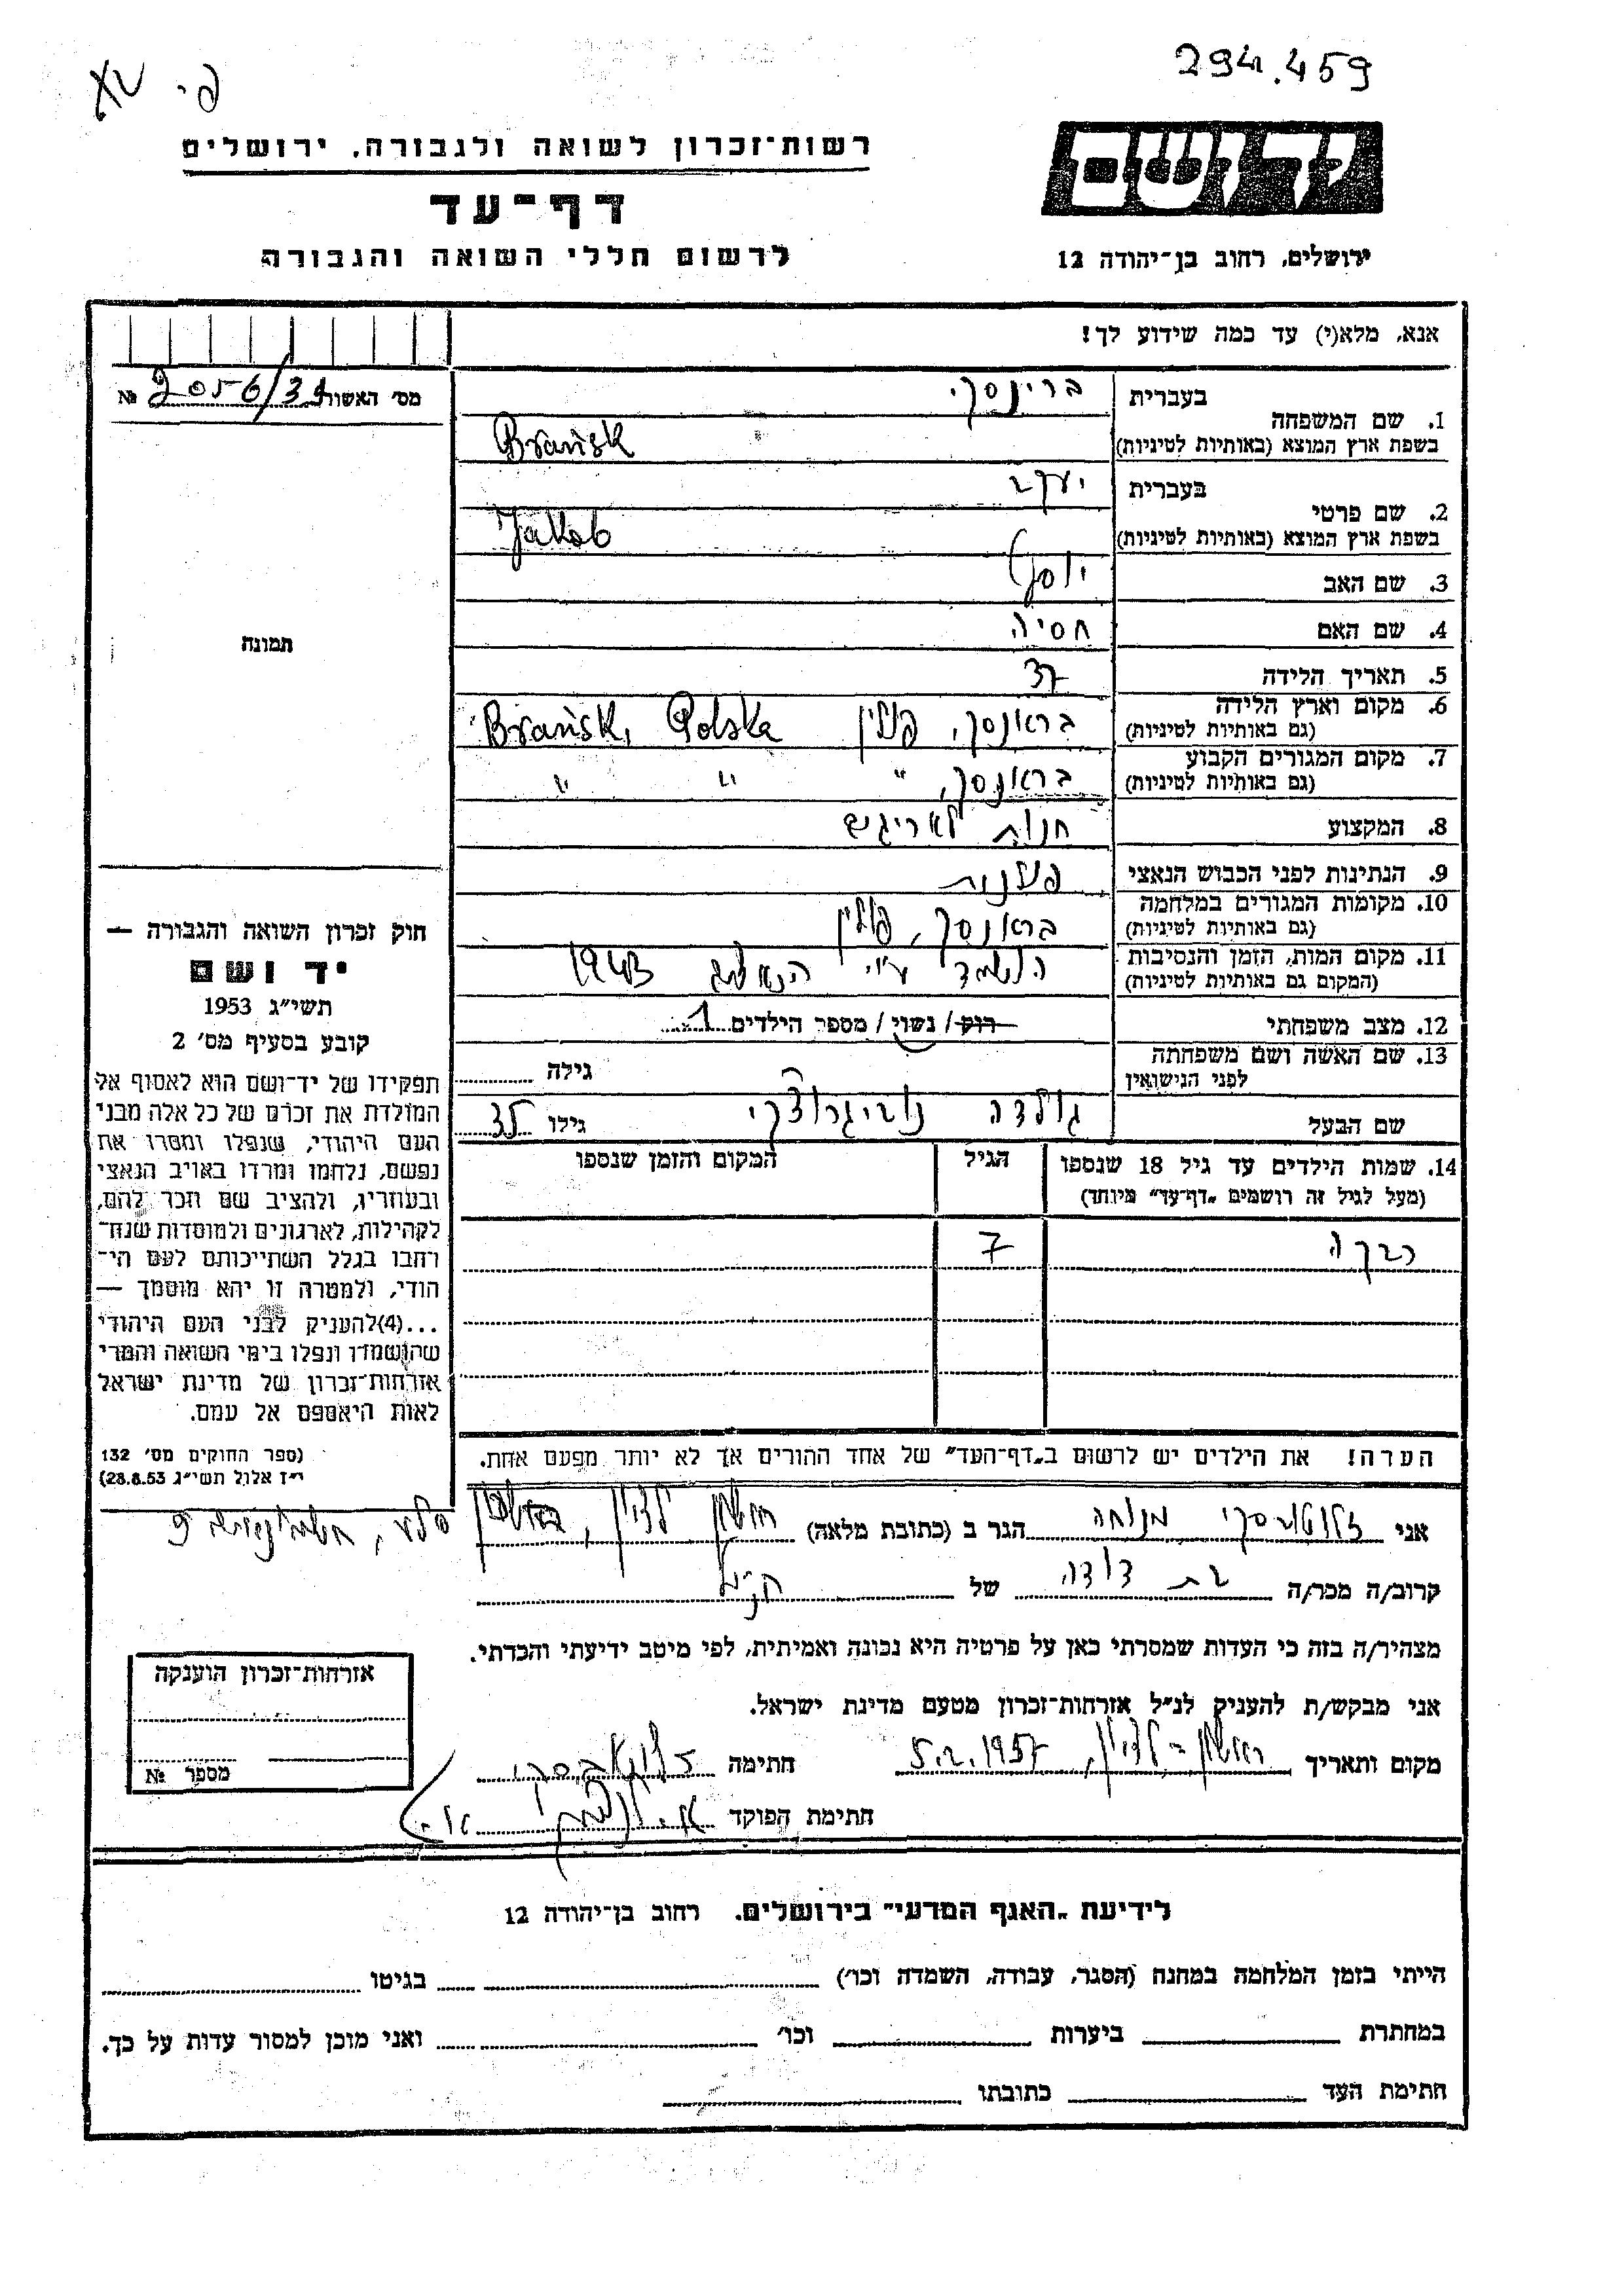 294.459
רשות־זכרון לשואה ולגבורה. ירושלים
דף־עד
לרשום חללי השואה והגבורה
יד ושם
ירושלים, רחוב בן־יהודה 12
אנא, מלא(י) עד כמה שידוע לך!
מס' האשור 2056/39 №
תמונה
בעברית ברינסקי
1. שם המשפחה
בשפת ארץ המוצא (באותיות לטיניות) Brańsk
בעברית יעקב
2. שם פרטי
בשפת ארץ המוצא (באותיות לטיניות) Jakob
3. שם האב יוסף
4. שם האם חסיה
5. תאריך הלידה 37
6. מקום וארץ הלידה בראנסק, פולין Brańsk, Polska
(גם באותיות לטיניות)
7. מקום המגורים הקבוע בראנסק, " " "
(גם באותיות לטיניות)
8. המקצוע חנות לאריגים
9. הנתינות לפני הכבוש הנאצי פולנית
10. מקומות המגורים במלחמה בראנסק, פולין
(גם באותיות לטיניות)
11. מקום המות, הזמן והנסיבות הושמד ע"י הנאצים 1943
(המקום גם באותיות לטיניות)
12. מצב משפחתי רוק / נשוי / מספר הילדים 1
13. שם האשה ושם משפחתה גילה
לפני הנישואין
שם הבעל גולדה גילו 35
14. שמות הילדים עד גיל 18 שנספו הגיל המקום והזמן שנספו
(מעל לגיל זה רושמים „דף־עד" מיוחד)
רבקה 7
הערה! את הילדים יש לרשום ב„דף־העד" של אחד ההורים אך לא יותר מפעם אחת.
חוק זכרון השואה והגבורה —
יד ושם
תשי"ג 1953
קובע בסעיף מס' 2
תפקידו של יד־ושם הוא לאסוף אל
המולדת את זכרם של כל אלה מבני
העם היהודי, שנפלו ומסרו את
נפשם, נלחמו ומרדו באויב הנאצי
ובעוזריו, ולהציב שם וזכר להם,
לקהילות, לארגונים ולמוסדות שנח־
רחבו בגלל השתייכותם לעם הי־
הודי, ולמטרה זו יהא מוסמך —
...(4)להעניק לבני העם היהודי
שהושמדו ונפלו בימי השואה והמרי
אזרחות־זכרון של מדינת ישראל
לאות היאספם אל עמם.
(ספר החוקים מס' 132
י"ז אלול תשי"ג 28.8.53)
אני זלוטובסקי מנוחה הגר ב (כתובת מלאה) ראשון לציון,
קרוב/ה מכר/ה בת דודה של הנ"ל
מצהיר/ה בזה כי העדות שמסרתי כאן על פרטיה היא נכונה ואמיתית, לפי מיטב ידיעתי והכרתי.
אני מבקש/ת להעניק לנ"ל אזרחות־זכרון מטעם מדינת ישראל.
מקום ותאריך ראשון-לציון, 5.2.1957 חתימה זלוטובסקי
חתימת הפוקד
אזרחות־זכרון הוענקה
מספר №
לידיעת „האגף המדעי" בירושלים. רחוב בן־יהודה 12
הייתי בזמן המלחמה במחנה (הסגר, עבודה, השמדה וכו') בגיטו
במחתרת ביערות וכו' ואני מוכן למסור עדות על כך.
חתימת העד כתובתו